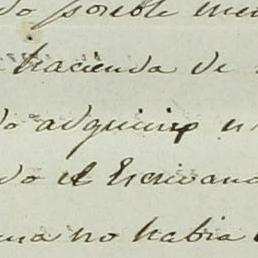 do posible me
hacienda de
do adquirir u
do el Escribano
na no habia